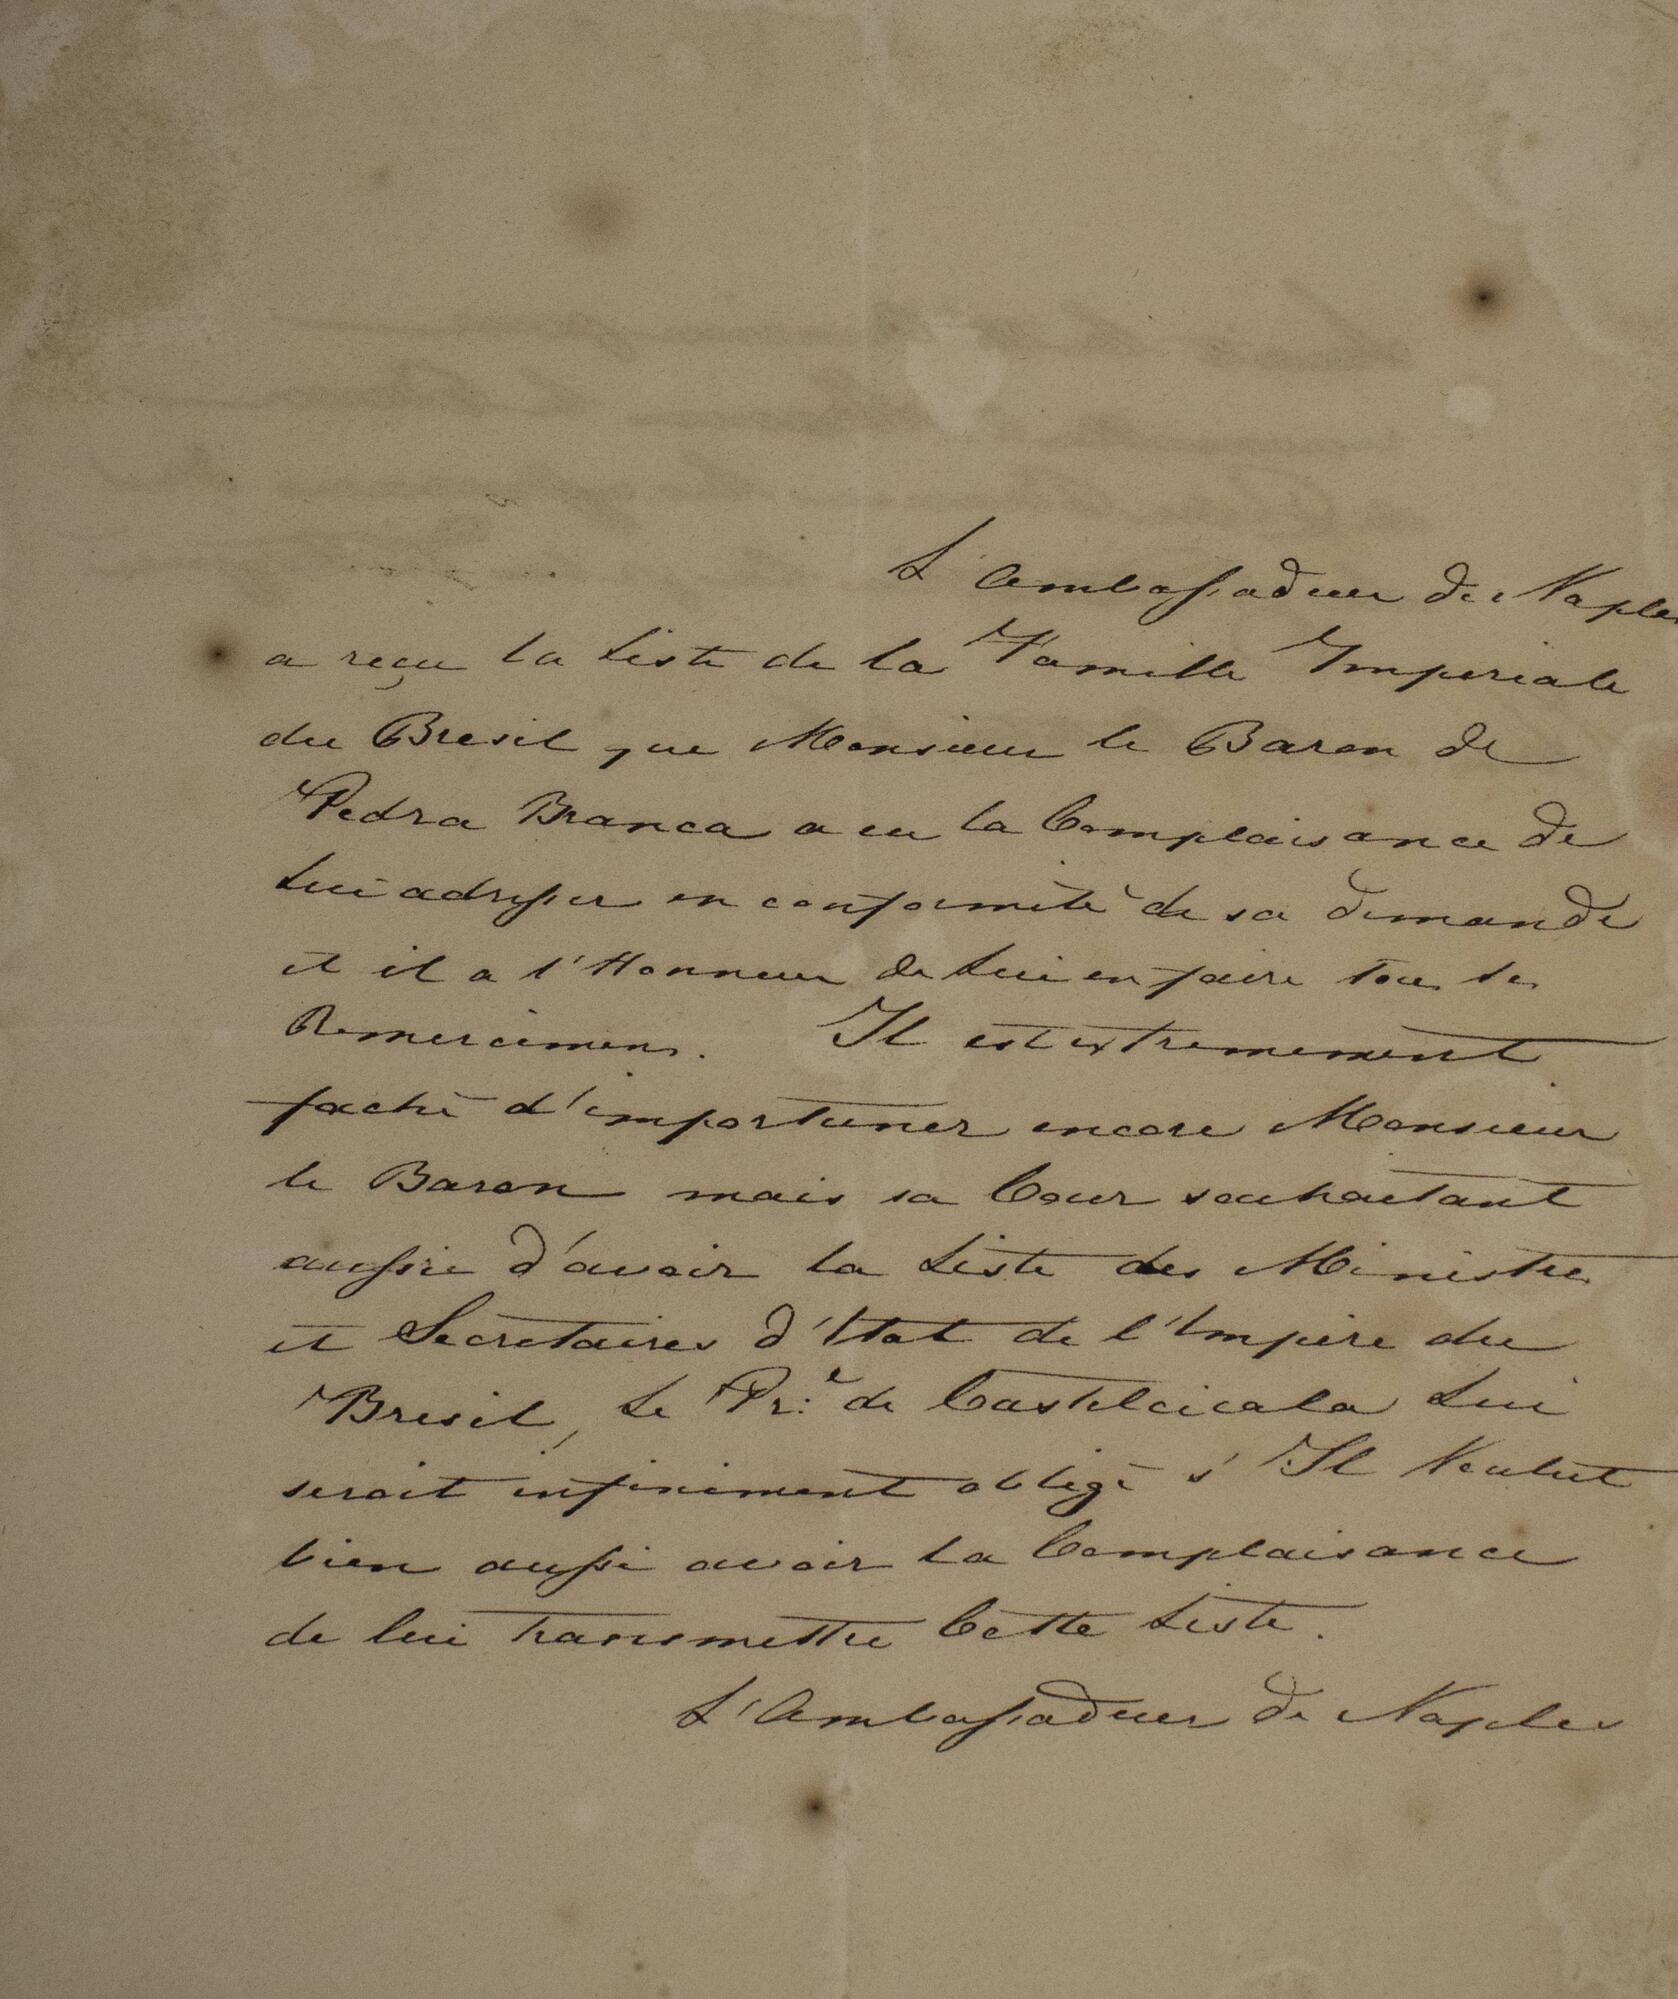 L'Ambassadeur de Naples
a reçu la Liste de la Famille Imperiale
du Bresil que Monsieur le Baron de
Pedra Branca a eu la Complaisance de
Lui adresser en conformité de sa demande
et il a l'Honneur de Lui en faire tous les
Remercimens. Il est extremement
faché d'importuner encore Monsieur
le Baron mais sa Cour souhaitant
aussie d'avoir la Liste des Ministres
et Secretaires d'Etat de l'Empire du
Bresil, Le Pr:e de Castelcicala Lui
seroit infiniment obligé s'Il Voulut
bien aussi avoir la Complaisance
de lui transmettre Cette Liste.
L'Ambassadeur de Naples